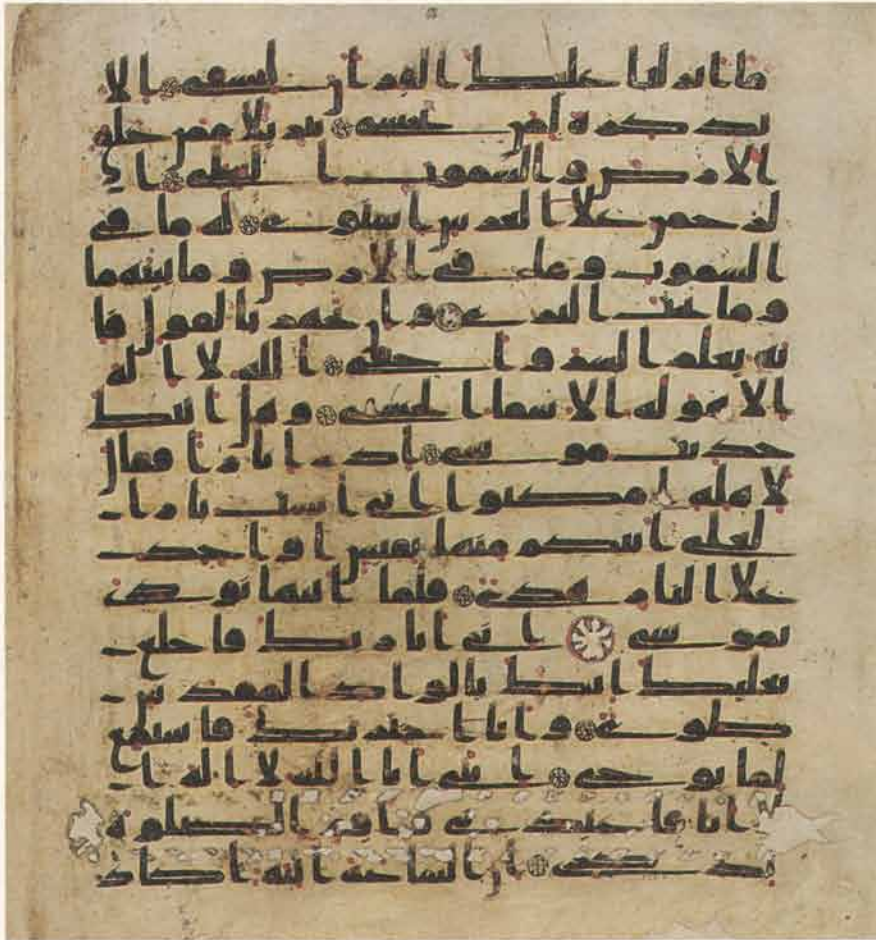 ما انزلنا عليك القران لتشقى الا
تذكرة لمن يخشى تنزيلا ممن خلق
الارض والسموت العلى ا
لرحمن علا العرش استوى له ما في
السموت وما في الارض وما بينهما
وما تحت الثرى وان تجهر بالقول فا
نه يعلم السر واخفى الله لا اله
الا هو له الاسما الحسنى وهل اتيك
حديث موسى اذ را نارا فقال
لاهله امكثوا اني انست نارا
لعلي اتيكم منها بقبس او اجد
علا النار هدى فلما اتيها نودي
يموسى اني انا ربك فاخلع
نعليك انك بالواد المقدس
طوى وانا اخترتك فاستمع
لما يوحى انني انا الله لا اله ا
لا انا فاعبدني واقم الصلوة
لذكري ان الساعة اتية اكاد